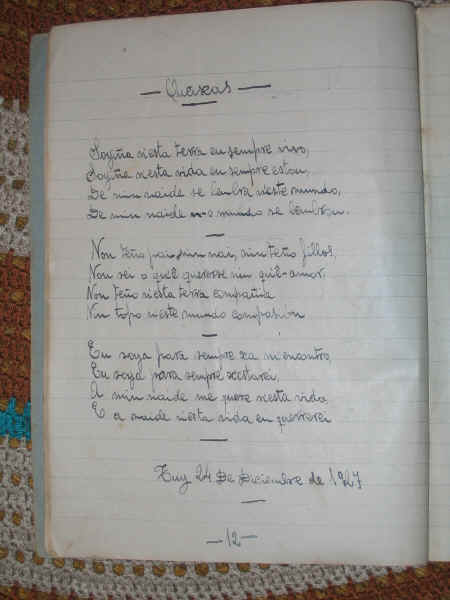 — Queixas —
Soyiña n'esta terra eu sempre vivo,
Soyiña n'esta vida eu sempre estou,
De min naide se lembra n'este mundo,
De min naide n-o mundo se lembrou.
Non teño pai, nin nai, nin teño fillos,
Non sei o qu'é quererse nin qu'é amor,
Non teño n'esta terra compañia
Nin topo n'este mundo compasión
Eu soya para sempre xa m'encontro,
Eu soya para sempre xestarei,
A min naide me quere n'esta vida
E a naide n'esta vida eu quererei
Tuy 24 De Diciembre de 1927
—12—